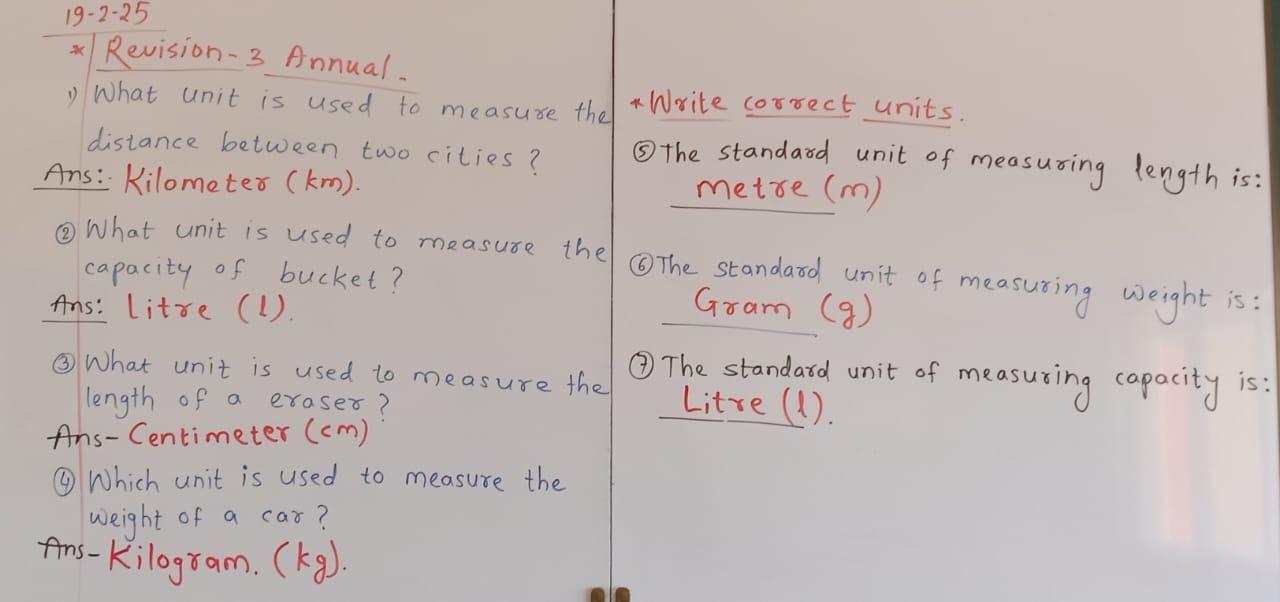 19-2-25
* Revision-3 Annual.
1) What unit is used to measure the
distance between two cities?
Ans:- Kilometer (km).
② What unit is used to measure the
capacity of bucket?
Ans: litre (l).
③ What unit is used to measure the
length of a eraser?
Ans- Centimeter (cm)
④ Which unit is used to measure the
weight of a car?
Ans- Kilogram. (kg).
* Write correct units.
⑤ The standard unit of measuring length is:
metre (m)
⑥ The standard unit of measuring weight is:
Gram (g)
⑦ The standard unit of measuring capacity is:
Litre (l).